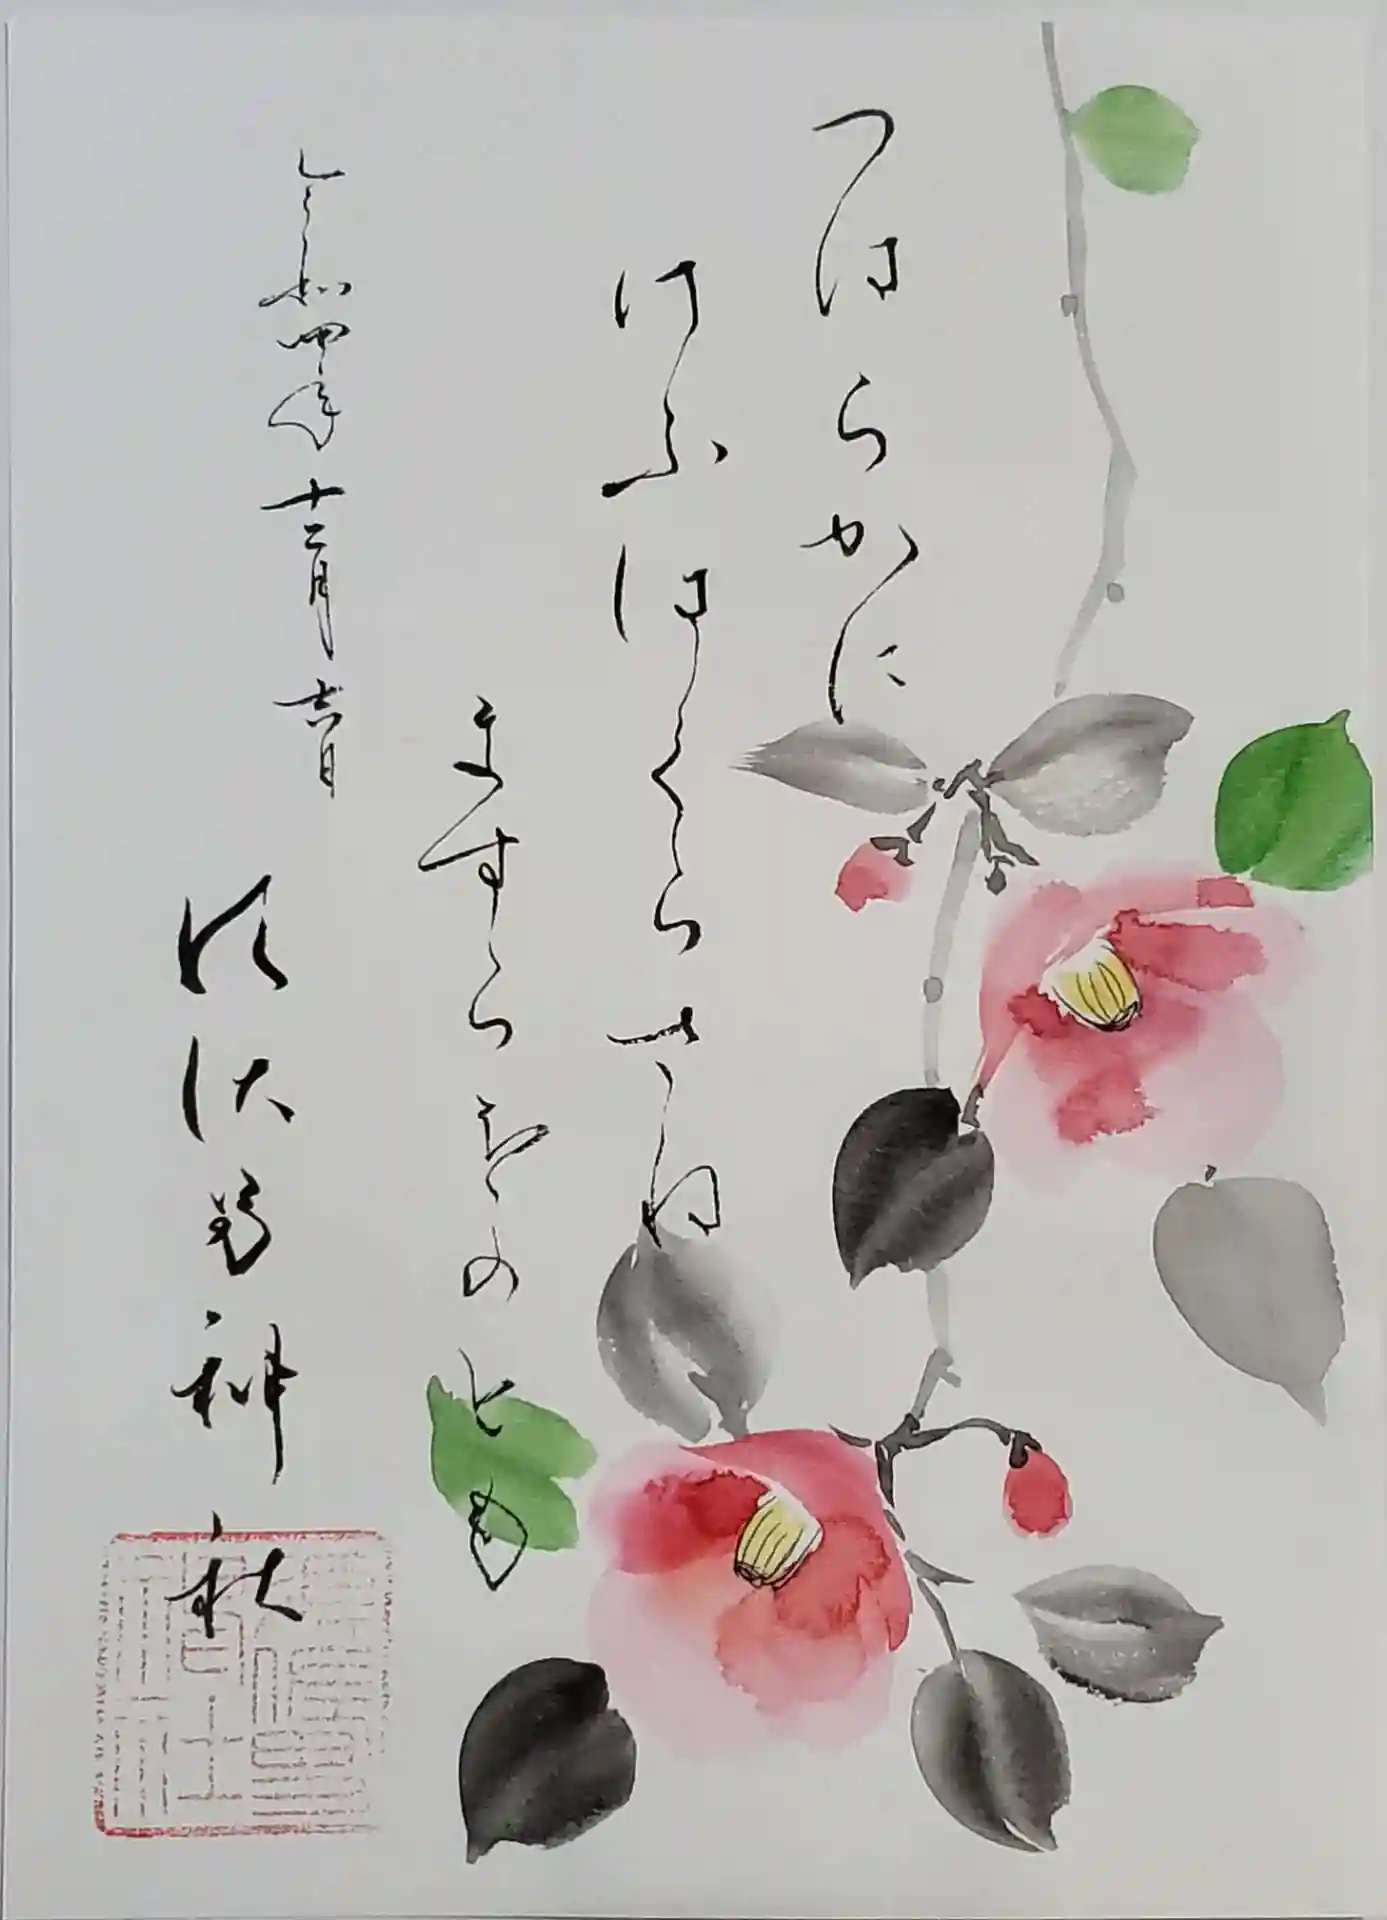 つはらかに
けふはくらさね
ますらをのとも
令和四年十二月吉日
神社